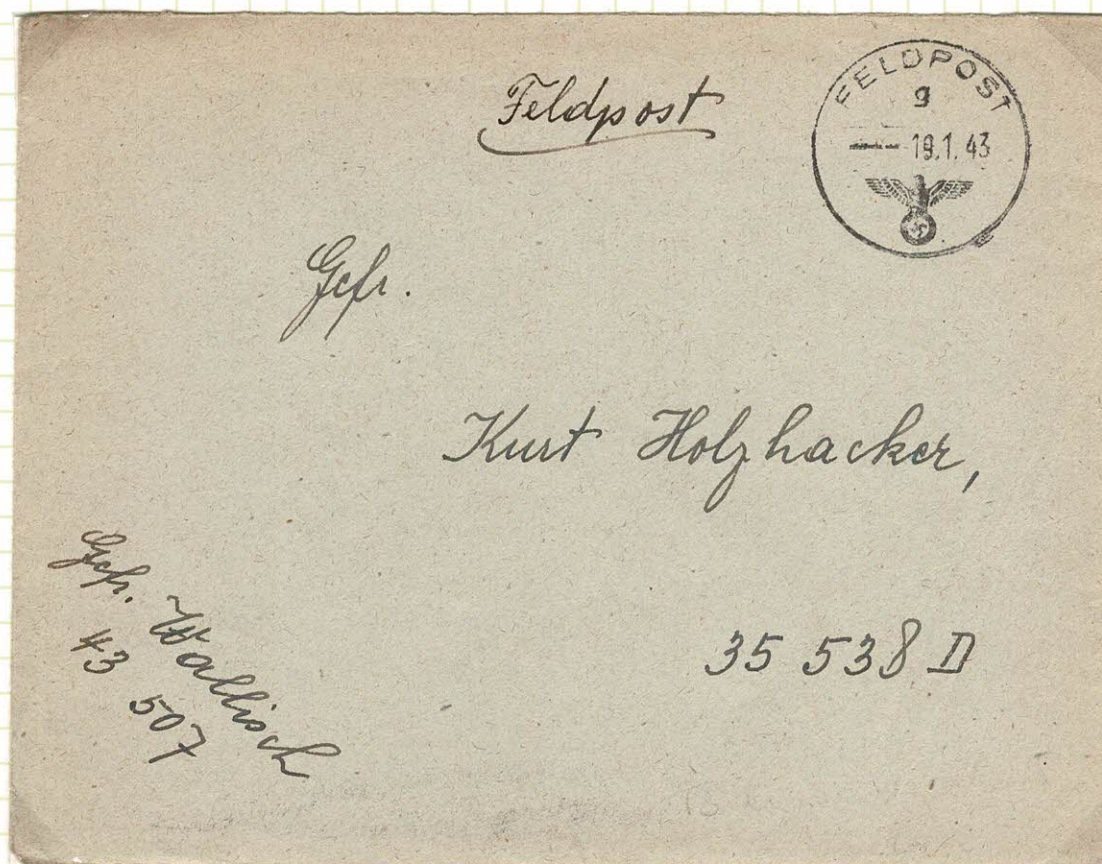 Feldpost
FELDPOST
g
19.1.43
Gefr.
Kurt Holzhacker,
35 538 D
Gefr. Wallisch
43 507